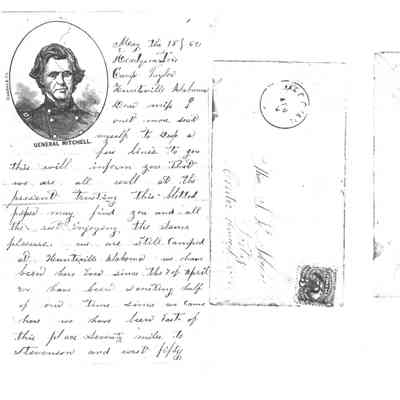 May the 18 / 62
Headquarters
Camp Taylor
Huntsville Alabama
Dear miss I
once more seat
myself to drop a
few lines to you
GENERAL MITCHELL.
this will inform you that
we are all well at the
present trusting this blotted
paper may find you and all
the rest enjoying the same
pleasure. we are still camped
at Huntsville Alabama we have
been here ever since the 7 of April
we have been scouting half
of our time since we came
here we have been East of
this place seventy miles to
Stevenson and west fifty